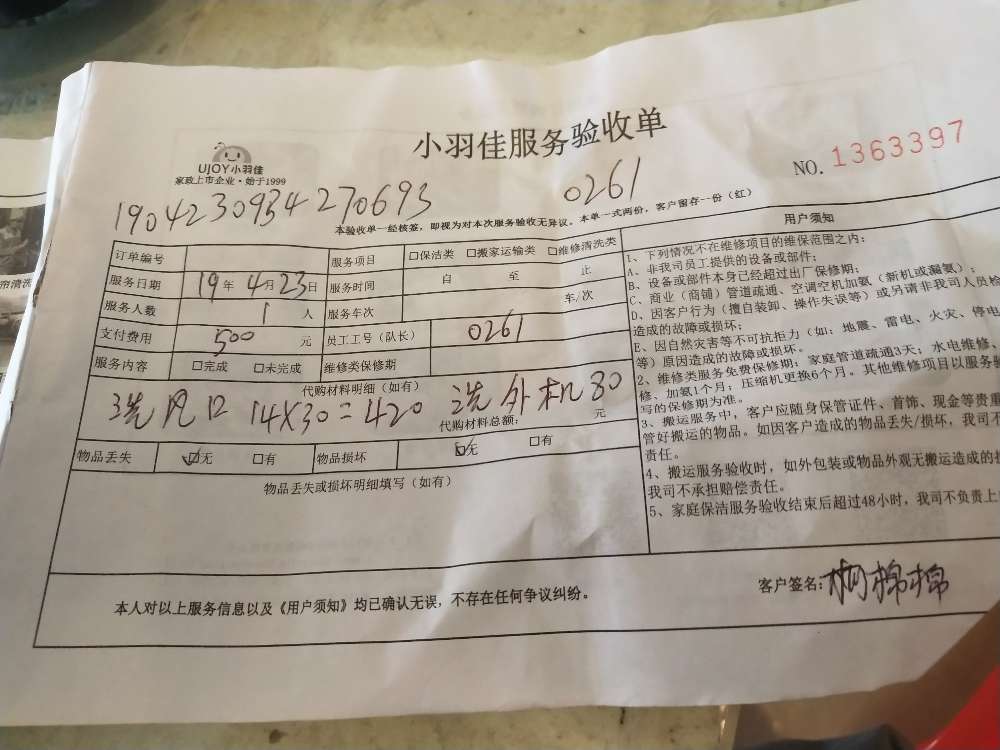 小羽佳服务验收单
UJOY小羽佳
家政上市企业·始于1999
NO. 1363397
1904230934270693
0261
本验收单一经核签，即视为对本次服务验收无异议。本单一式两份，客户留存一份（红）
订单编号 服务项目 □保洁类 □搬家运输类 □维修清洗类
服务日期 19年4月23日 服务时间 自 至 止
服务人数 1人 服务车次 车/次
支付费用 500元 员工工号（队长） 0261
服务内容 □完成 □未完成 维修类保修期
代购材料明细（如有）
洗风口 14X30=420 洗外机80
代购材料总额： 元
物品丢失 ☑无 □有 物品损坏 ☑无 □有
物品丢失或损坏明细填写（如有）
用户须知
1、下列情况不在维修项目的维保范围之内：
A、非我司员工提供的设备或部件；
B、设备或部件本身已经超过出厂保修期；
C、商业（商铺）管道疏通、空调空机加氨（新机或漏氨）；
D、因客户行为（擅自装卸、操作失误等）或另请非我司人员检
造成的故障或损坏；
E、因自然灾害等不可抗拒力（如：地震、雷电、火灾、停电
等）原因造成的故障或损坏。
2、维修类服务免费保修期：家庭管道疏通3天；水电维修、
修、加氨1个月；压缩机更换6个月。其他维修项目以服务验
写的保修期为准。
3、搬运服务中，客户应随身保管证件、首饰、现金等贵重
管好搬运的物品。如因客户造成的物品丢失/损坏，我司不
责任。
4、搬运服务验收时，如外包装或物品外观无搬运造成的损
我司不承担赔偿责任。
5、家庭保洁服务验收结束后超过48小时，我司不负责上
本人对以上服务信息以及《用户须知》均已确认无误，不存在任何争议纠纷。
客户签名：
帘清洗